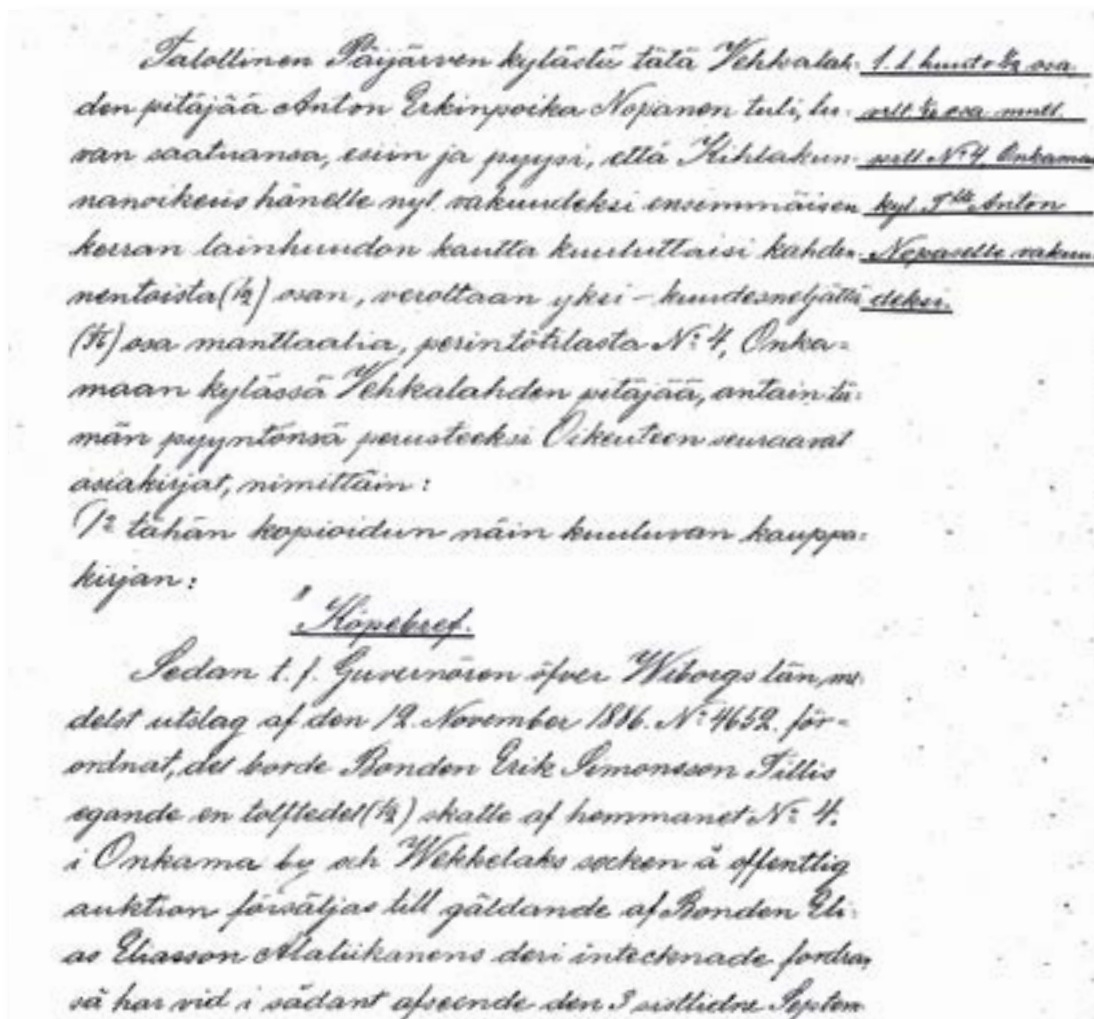 Talollinen Päijärven kylästä tätä Vehkalah-
den pitäjää Anton Erkinpoika Nopanen tuli, lu-
van saatuansa, esiin ja pyysi, että Kihlakun-
nanoikeus hänelle nyt vakuudeksi ensimmäisen
kerran lainhuudon kautta kuuluttaisi kahden-
nentoista (1/12) osan, veroltaan yksi-kuudesneljättä
osa manttaalia, perintötilasta N:o 4, Onka-
maan kylässä Vehkalahden pitäjää, antain tä-
män pyyntönsä perusteeksi Oikeuteen seuraavat
asiakirjat, nimittäin:
1:o tähän kopioidun näin kuuluvan kauppa-
kirjan:
1. l. huuto 1/12 osa
osa mantt.
N:o 4 Onkamaa
kyl. T:lle Anton
Nopaselle vakuu-
deksi.
"Köpebref.
Sedan t. f. Guvernören öfver Wiborgs län, me-
delst utslag af den 12. November 1886. N:o 4652. för-
ordnat, det borde Bonden Erik Simonsson Tillis
egande en tolftedel (1/12) skatte af hemmanet N:o 4.
i Onkama by och Wekkelaks socken å offentlig
auktion försäljas till gäldande af Bonden Eli-
as Eliasson Alaliikanens deri intecknade fordran
så har vid i sådant afseende den 3 sistlidne Septem